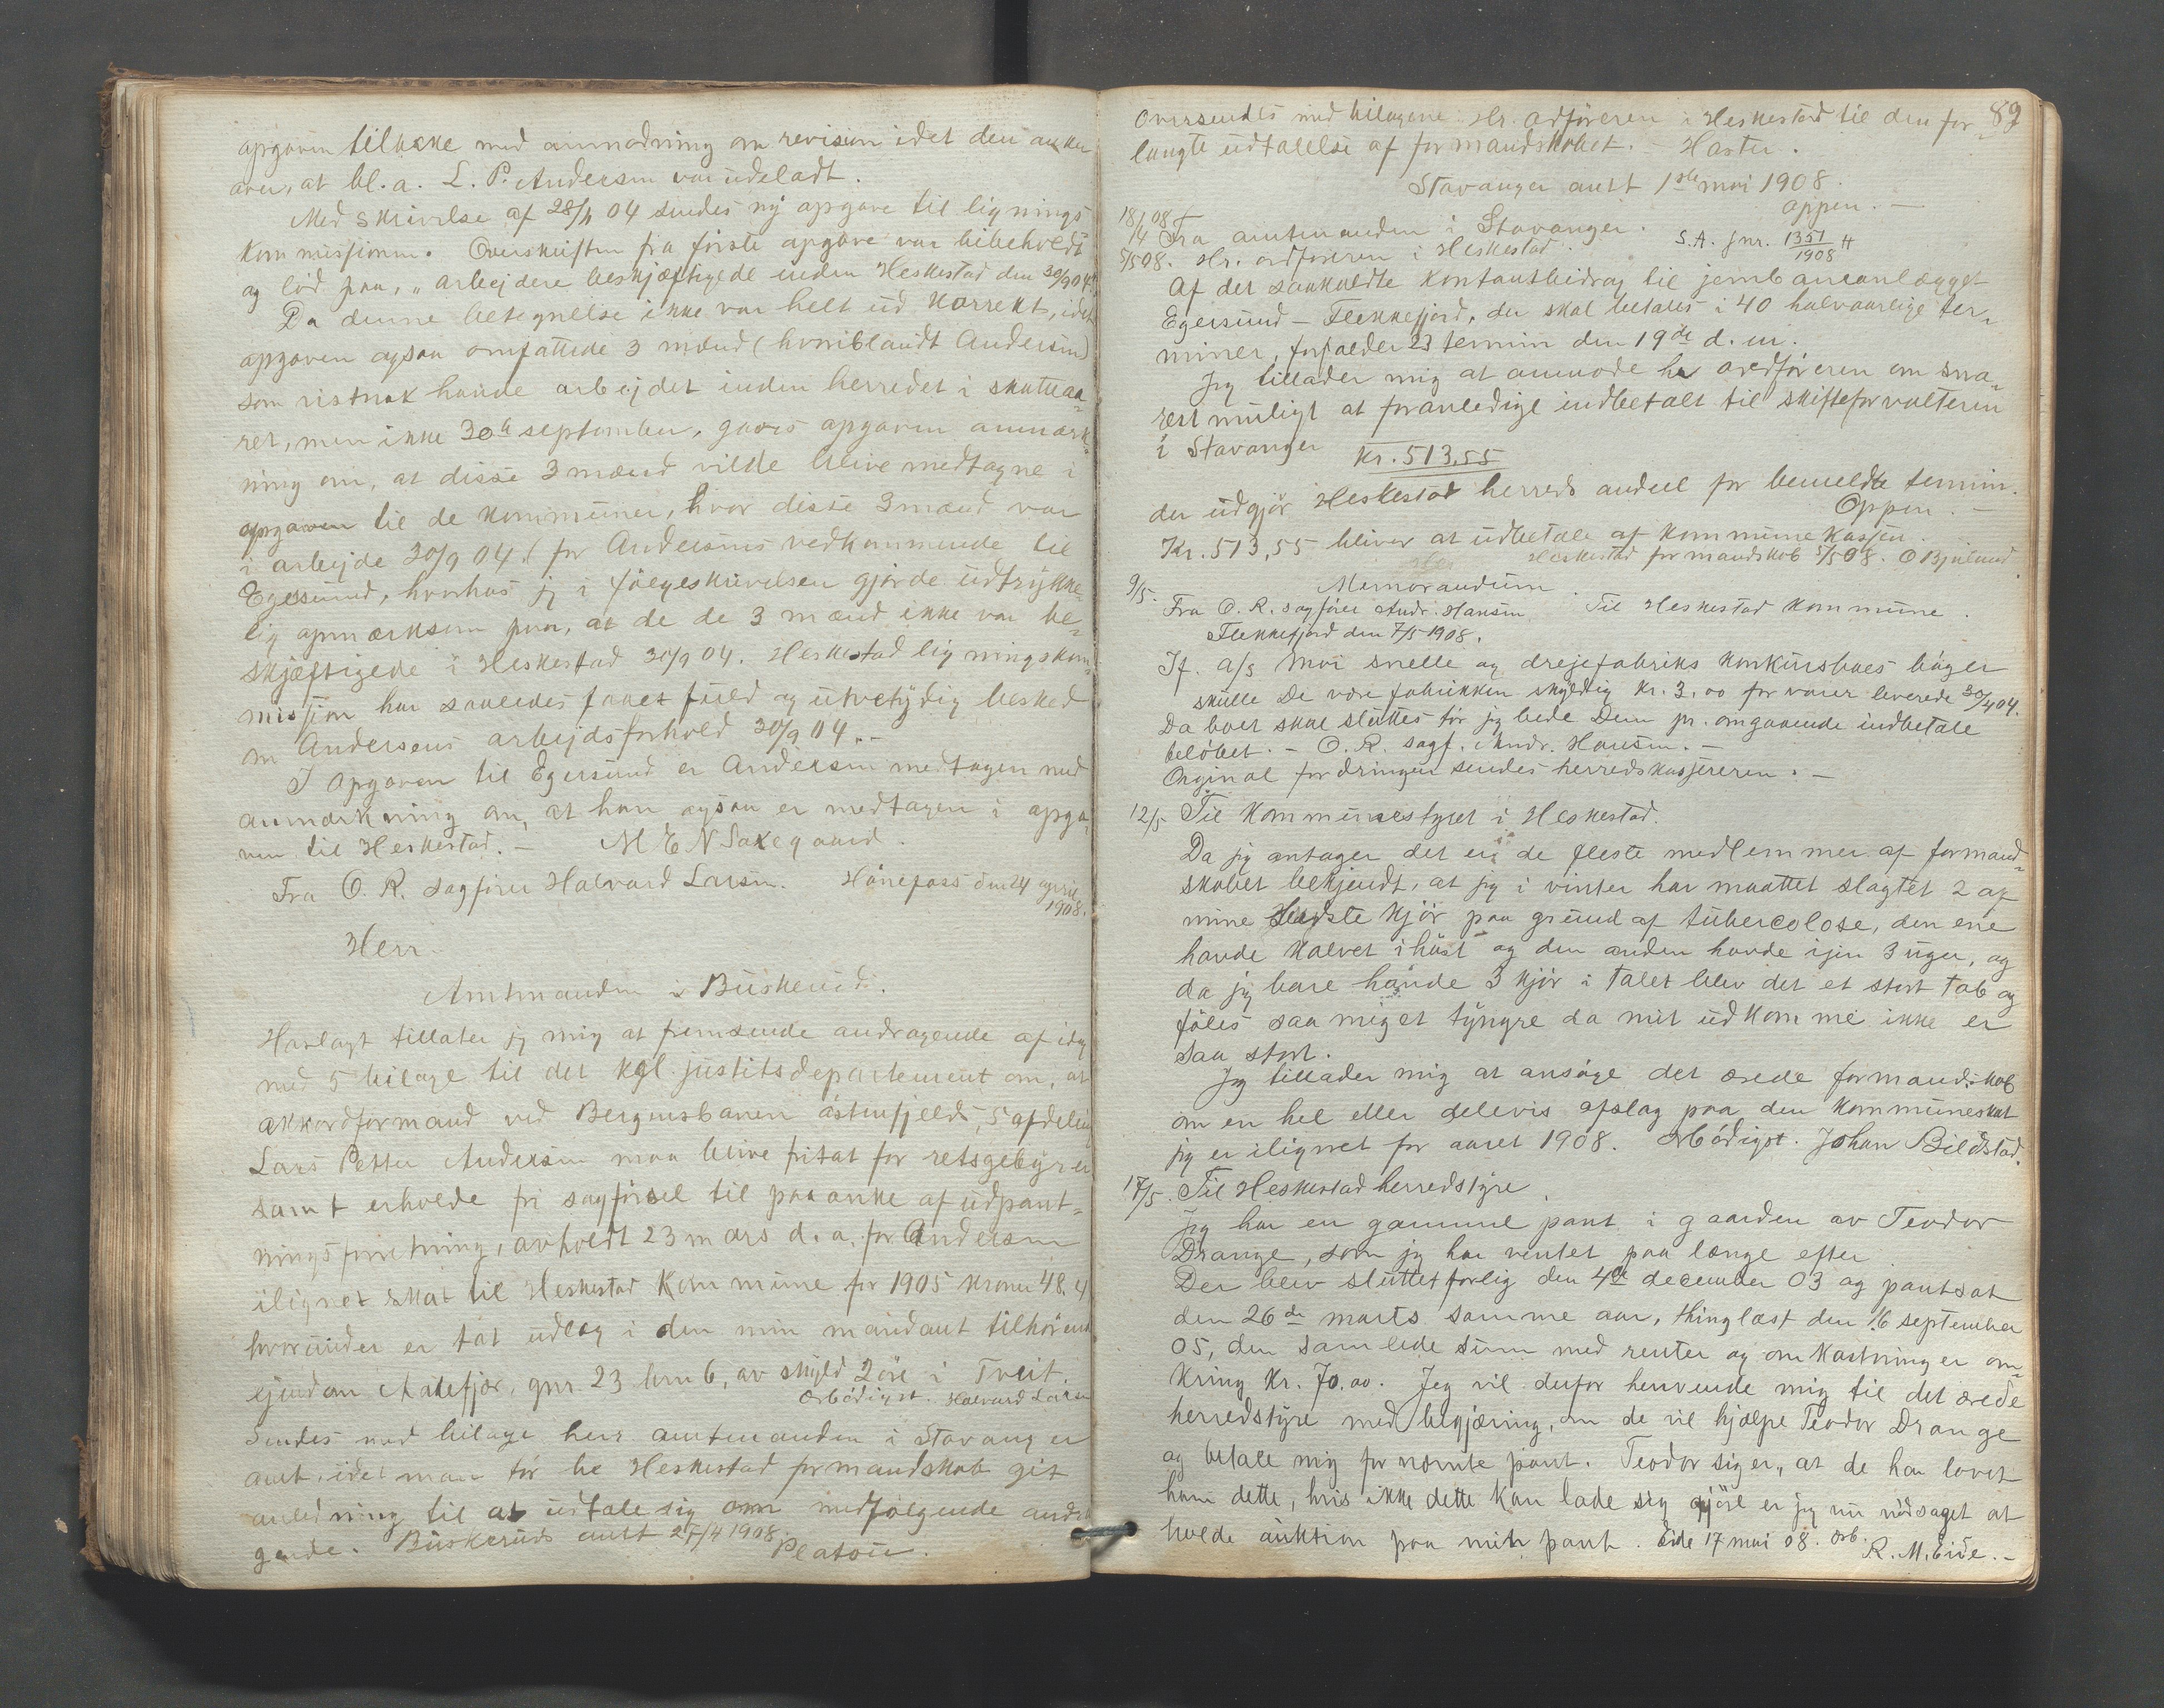 opgaven tilbake med anmodning om revision idet den anker
over, at bl. a. L. P. Andersen var udeladt.
Med skrivelse af 28/11 04 sendes ny opgave til lignings
kommissionen. Overskriften fra første opgave var bibeholdt
og lød paa, „arbejdere beskjæftigede inden Heskestad den 30/9 04"
Da denne betegnelse ikke var helt ud korrekt, idet
opgaven ogsaa omfattede 3 mænd (hvoriblandt Andersen)
som vistnok havde arbejdet inden herredet i skatteaa-
ret, men ikke 30te september, gaves opgaven anmærk-
ning om, at disse 3 mænd vilde blive medtagne i
opgaven til de kommuner, hvor disse 3 mænd var
i arbejde 30/9 04 (for Andersens vedkommende til
Egersund, hvorhos jeg i følgeskrivelsen gjorde udtrykke-
lig opmærksom paa, at de de 3 mænd ikke var be-
skjæftigede i Heskestad 30/9 04. Heskestad ligningskom-
mission har saaledes faaet fuld og utvetydig besked
om Andersens arbejdsforhold 30/9 04.-
I opgaven til Egersund er Andersen medtagen med
anmærkning om, at han ogsaa er medtagen i opga-
ven til Heskestad. - M E N Saxegaard.
Fra O. R. sagfører Halvard Larsen. Hønefoss den 24 april
1908.
Herr
Amtmanden i Buskerud.
Hoslagt tillater jeg mig at fremsende andragende af idag
med 5 bilage til det kgl. justitsdepartement om, at
akkordformand ved Bergensbanen østenfjelds, 5 afdeling
Lars Petter Andersen maa blive fritat for retsgebyrer
samt erholde fri sagførsel til paaanke af udpant-
ningsforretning, avholdt 23 mars d. a. for Andersen
ilignet skat til Heskestad Kommune for 1905 kroner 48.4
hvorunder er tat udlæg i den min mandant tilhørende
ejendom Aalefjær, gnr. 23 brn 6, av skyld 2 øre i Tveit.
Ærbødigst. Halvard Larsen
Sendes med bilage herr amtmanden i Stavanger
amt, idet man tør be Heskestad formandskab git
anledning til at udtale sig om medfølgende andra
gende. Buskeruds amt 27/4 1908.
Platou.
89
Oversendes med bilagene Hr. Ordføreren i Heskestad til den for-
langte udtalelse af formandskabet. Haster.
Stavanger amt 1ste mai 1908.
Oppen. -
18/4 08 Fra amtmanden i Stavanger.
S.A. jnr. 1351/1908 H
5/5 08. Hr. ordføreren i Heskestad.
Af det saakaldte kontantbidrag til jernbaneanlægget
Egersund - Flekkefjord, der skal betales i 40 halvaarlige ter-
miner, forfalder 23 termin den 19de d. m.
Jeg tillader mig at anmode hr ordføreren om sna-
rest muligt at foranledige indbetalt til skifteforvalteren
i Stavanger
Kr. 513,55
der udgjør Heskestad herreds andeel for bemeldte termin.
Oppen. -
Kr. 513,55 bliver at udbetale af kommunekassen.
Heskestad formandskab 5/5 08. O Bjuland.
9/5. Memorandum.
Fra O. R. sagfører Andr. Hansen Til Heskestad kommune.
Flekkefjord den 7/5 1908.
If. a/s Moi snelle og drejefabriks konkursboes bøger
skulle De være fabrikken skyldig kr. 3,00 for varer leverede 30/4 04.
Da boet skal sluttes tør jeg bede Dem pr. omgaaende indbetale
beløbet. - O. R. sagf. Andr. Hansen. -
Orginal fordringen sendes herredskassereren. -
12/5 Til Kommunestyret i Heskestad.
Da jeg antager det er de fleste medlemmer af formand-
skabet bekjendt, at jeg i vinter har maattet slagtet 2 af
mine bedste kjør paa grund af tubercolose, den ene
havde kalvet i høst og den anden havde igjen 3 uger, og
da jeg bare havde 3 kjør i talet blev det et stort tab og
føles saa meget tyngre da mit udkomme ikke er
saa stort.
Jeg tillader mig at ansøge det ærede formandskab
om en hel eller delevis afslag paa den kommuneskat
jeg er ilignet for aaret 1908. Ærbødigst. Johan Bildstad.
17/5. Til Heskestad herredstyre.
Jeg har en gammel pant i gaarden av Teodor
Drange, som jeg har ventet paa længe efter.
Der blev sluttet forlig den 4de december 03 og pantsat
den 26de marts samme aar, thinglæst den 16 september
05, den samlede sum med renter og omkastninger om-
kring kr. 70.00. Jeg vil derfor henvende mig til det ærede
herredstyre med begjæring, om de vil hjælpe Teodor Drange
og betale mig for nævnte pant. Teodor siger, at de har lovet
ham dette, hvis ikke dette kan lade sig gjøre er jeg nu nødsaget at
holde auktion paa mith pant. Eide 17 mai 08. ærb.
R. M. Eide. -